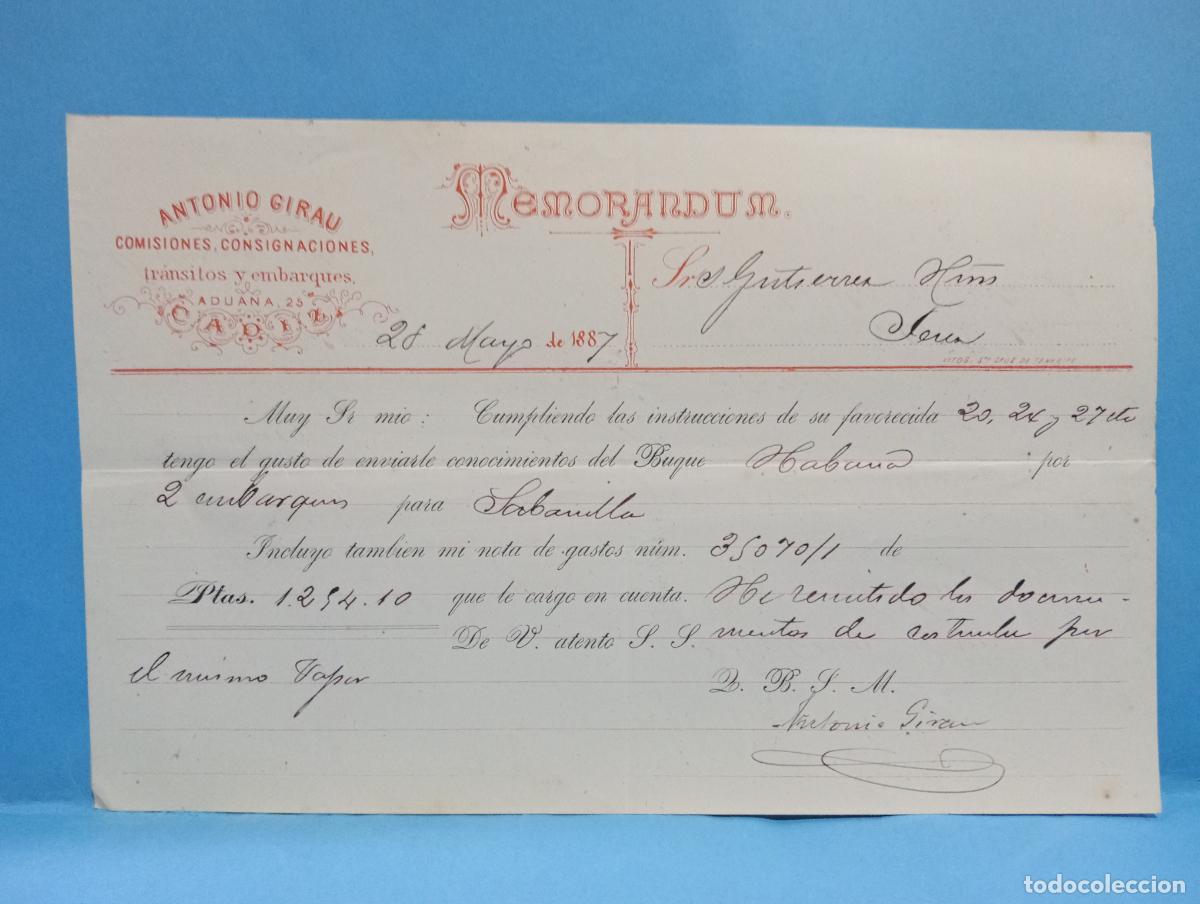 ANTONIO GIRAU
COMISIONES, CONSIGNACIONES,
tránsitos y embarques.
ADUANA, 25
CADIZ
MEMORANDUM.
Sr. S Gutierrez Hnos
Jerez
28 Mayo de 1887
Muy Sr mio: Cumpliendo las instrucciones de su favorecida 20, 24 y 27 cte
tengo el gusto de enviarle conocimientos del Buque Habana por
2 embarques para Sabanilla
Incluyo tambien mi nota de gastos núm. 35070/1 de
Ptas. 1.254.10 que le cargo en cuenta. He remitido los docum-
De V. atento S. S. mentos de por
el mismo Vapor
Q. B. S. M.
Antonio Girau
todocoleccion